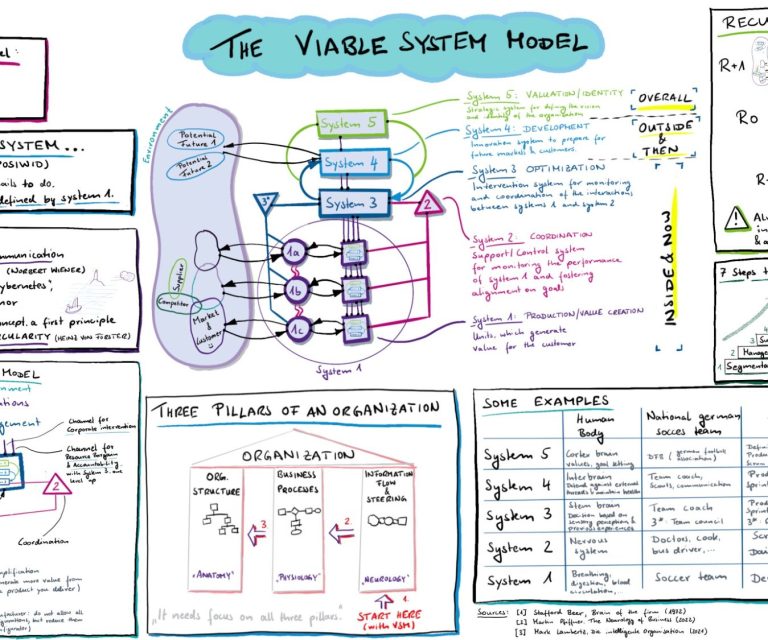 THE VIABLE SYSTEM MODEL
SYSTEM ...
(POSIWID)
to do.
defined by system 1.
(NORBERT WIENER)
a first principle
(HEINZ VON FÖRSTER)
MODEL
Channel for
Corporate intervention
Channel for
Resource Bargain
& Accountability
with System 3, one
level up
2
Coordination
Environment
Potential
Future 1
Potential
Future 2
Supplier
Competitor
Market
&
Customer
System 5
System 4
System 3
3*
2
1a
1b
1c
System 1
System 5: VALUATION/IDENTITY
Strategic system for defining the vision
and identity of the organisation
System 4: DEVELOPMENT
Innovation system to prepare for
future markets & customers.
System 3 OPTIMIZATION
Intervention system for monitoring
and coordination of the interactions
between systems 1 and system 2
System 2: COORDINATION
Support/Control system
for monitoring the performance
of system 1 and fostering
alignment on goals
System 1: PRODUCTION/VALUE CREATION
Units, which generate
value for the customer
OVERALL
OUTSIDE
&
THEN
INSIDE & NOW
R+1
Ro
7 Steps
THREE PILLARS OF AN ORGANIZATION
ORGANIZATION
ORG.
STRUCTURE
"ANATOMY"
3
BUSINESS
PROCESSES
"PHYSIOLOGY"
2.
INFORMATION
FLOW
&
STEERING
"NEUROLOGY"
1.
START HERE
(with VSM)
"It needs focus on all three pillars."
SOME EXAMPLES
Human
Body
National german
soccer team
System 5
Cortex brain
values, goal setting
DFB (german football
association)
System 4
Interbrain
Team coach,
Scouts, communication
System 3
Stem brain
Decision based on
sensory perception &
previous experiences
Team coach
3*: Team council
System 2
Nervous
system
Doctors, cook,
bus driver,...
System 1
Breathing,
digestion, blood
circulation,...
Soccer team
Sources: [1] Stafford Beer, Brain of the firm (1972)
[2] Martin Pfiffner, The Neurology of Business (2022)
[3] Mark Lambertz, Die intelligente Organisation (2021)